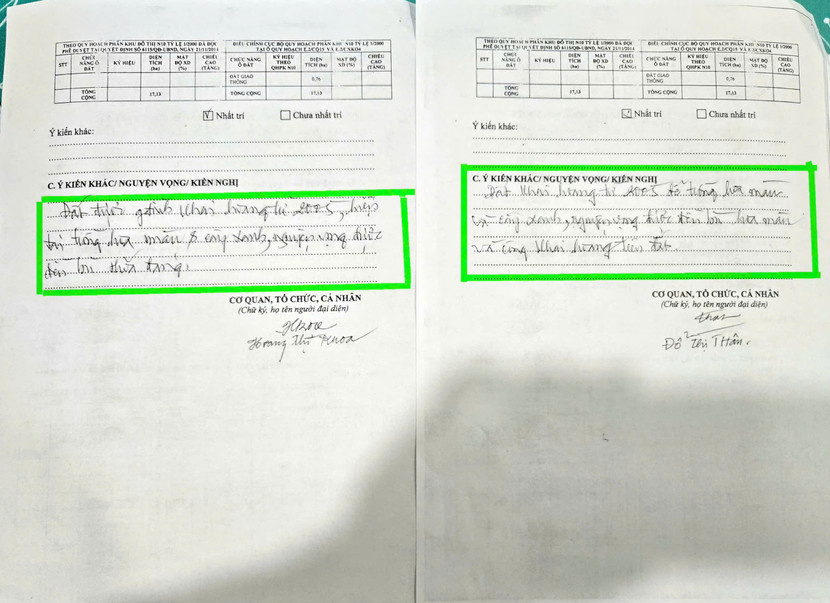 THEO QUY HOẠCH PHÂN KHU ĐÔ THỊ N10 TỶ LỆ 1/2000 ĐÃ ĐƯỢC
PHÊ DUYỆT TẠI QUYẾT ĐỊNH SỐ 6118/QĐ-UBND, NGÀY 21/11/2014
ĐIỀU CHỈNH CỤC BỘ QUY HOẠCH PHÂN KHU N10 TỶ LỆ 1/2000
TẠI Ô QUY HOẠCH
STT CHỨC NĂNG Ô ĐẤT KÝ HIỆU DIỆN TÍCH (ha) MẬT ĐỘ XD (%) CHIỀU CAO (TẦNG) CHỨC NĂNG Ô ĐẤT KÝ HIỆU THEO QHPK N10 DIỆN TÍCH (ha) MẬT ĐỘ XD (%) CHIỀU CAO (TẦNG)
ĐẤT GIAO THÔNG 0,76
TỔNG CỘNG 17,13 TỔNG CỘNG 17,13
Nhất trí Chưa nhất trí
Ý kiến khác:
C. Ý KIẾN KHÁC/ NGUYỆN VỌNG/ KIẾN NGHỊ
Đất được gđình khai hoang từ 2005, hiện
trồng hoa màu & cây xanh, nguyện vọng được
đền bù
CƠ QUAN, TỔ CHỨC, CÁ NHÂN
(Chữ ký, họ tên người đại diện)
Hoàng Thị Khoa
THEO QUY HOẠCH PHÂN KHU ĐÔ THỊ N10 TỶ LỆ 1/2000 ĐÃ ĐƯỢC
PHÊ DUYỆT TẠI QUYẾT ĐỊNH SỐ 6118/QĐ-UBND, NGÀY 21/11/2014
ĐIỀU CHỈNH CỤC BỘ QUY HOẠCH PHÂN KHU N10 TỶ LỆ 1/2000
TẠI Ô QUY HOẠCH
STT CHỨC NĂNG Ô ĐẤT KÝ HIỆU DIỆN TÍCH (ha) MẬT ĐỘ XD (%) CHIỀU CAO (TẦNG) CHỨC NĂNG Ô ĐẤT KÝ HIỆU THEO QHPK N10 DIỆN TÍCH (ha) MẬT ĐỘ XD (%) CHIỀU CAO (TẦNG)
ĐẤT GIAO THÔNG 0,76
TỔNG CỘNG 17,13 TỔNG CỘNG 17,13
Nhất trí Chưa nhất trí
Ý kiến khác:
C. Ý KIẾN KHÁC/ NGUYỆN VỌNG/ KIẾN NGHỊ
Đất khai hoang từ 2005 để trồng hoa màu
và cây xanh, nguyện vọng được đền bù hoa màu
và công khai hoang trên đất.
CƠ QUAN, TỔ CHỨC, CÁ NHÂN
(Chữ ký, họ tên người đại diện)
Đỗ Thị Thân.